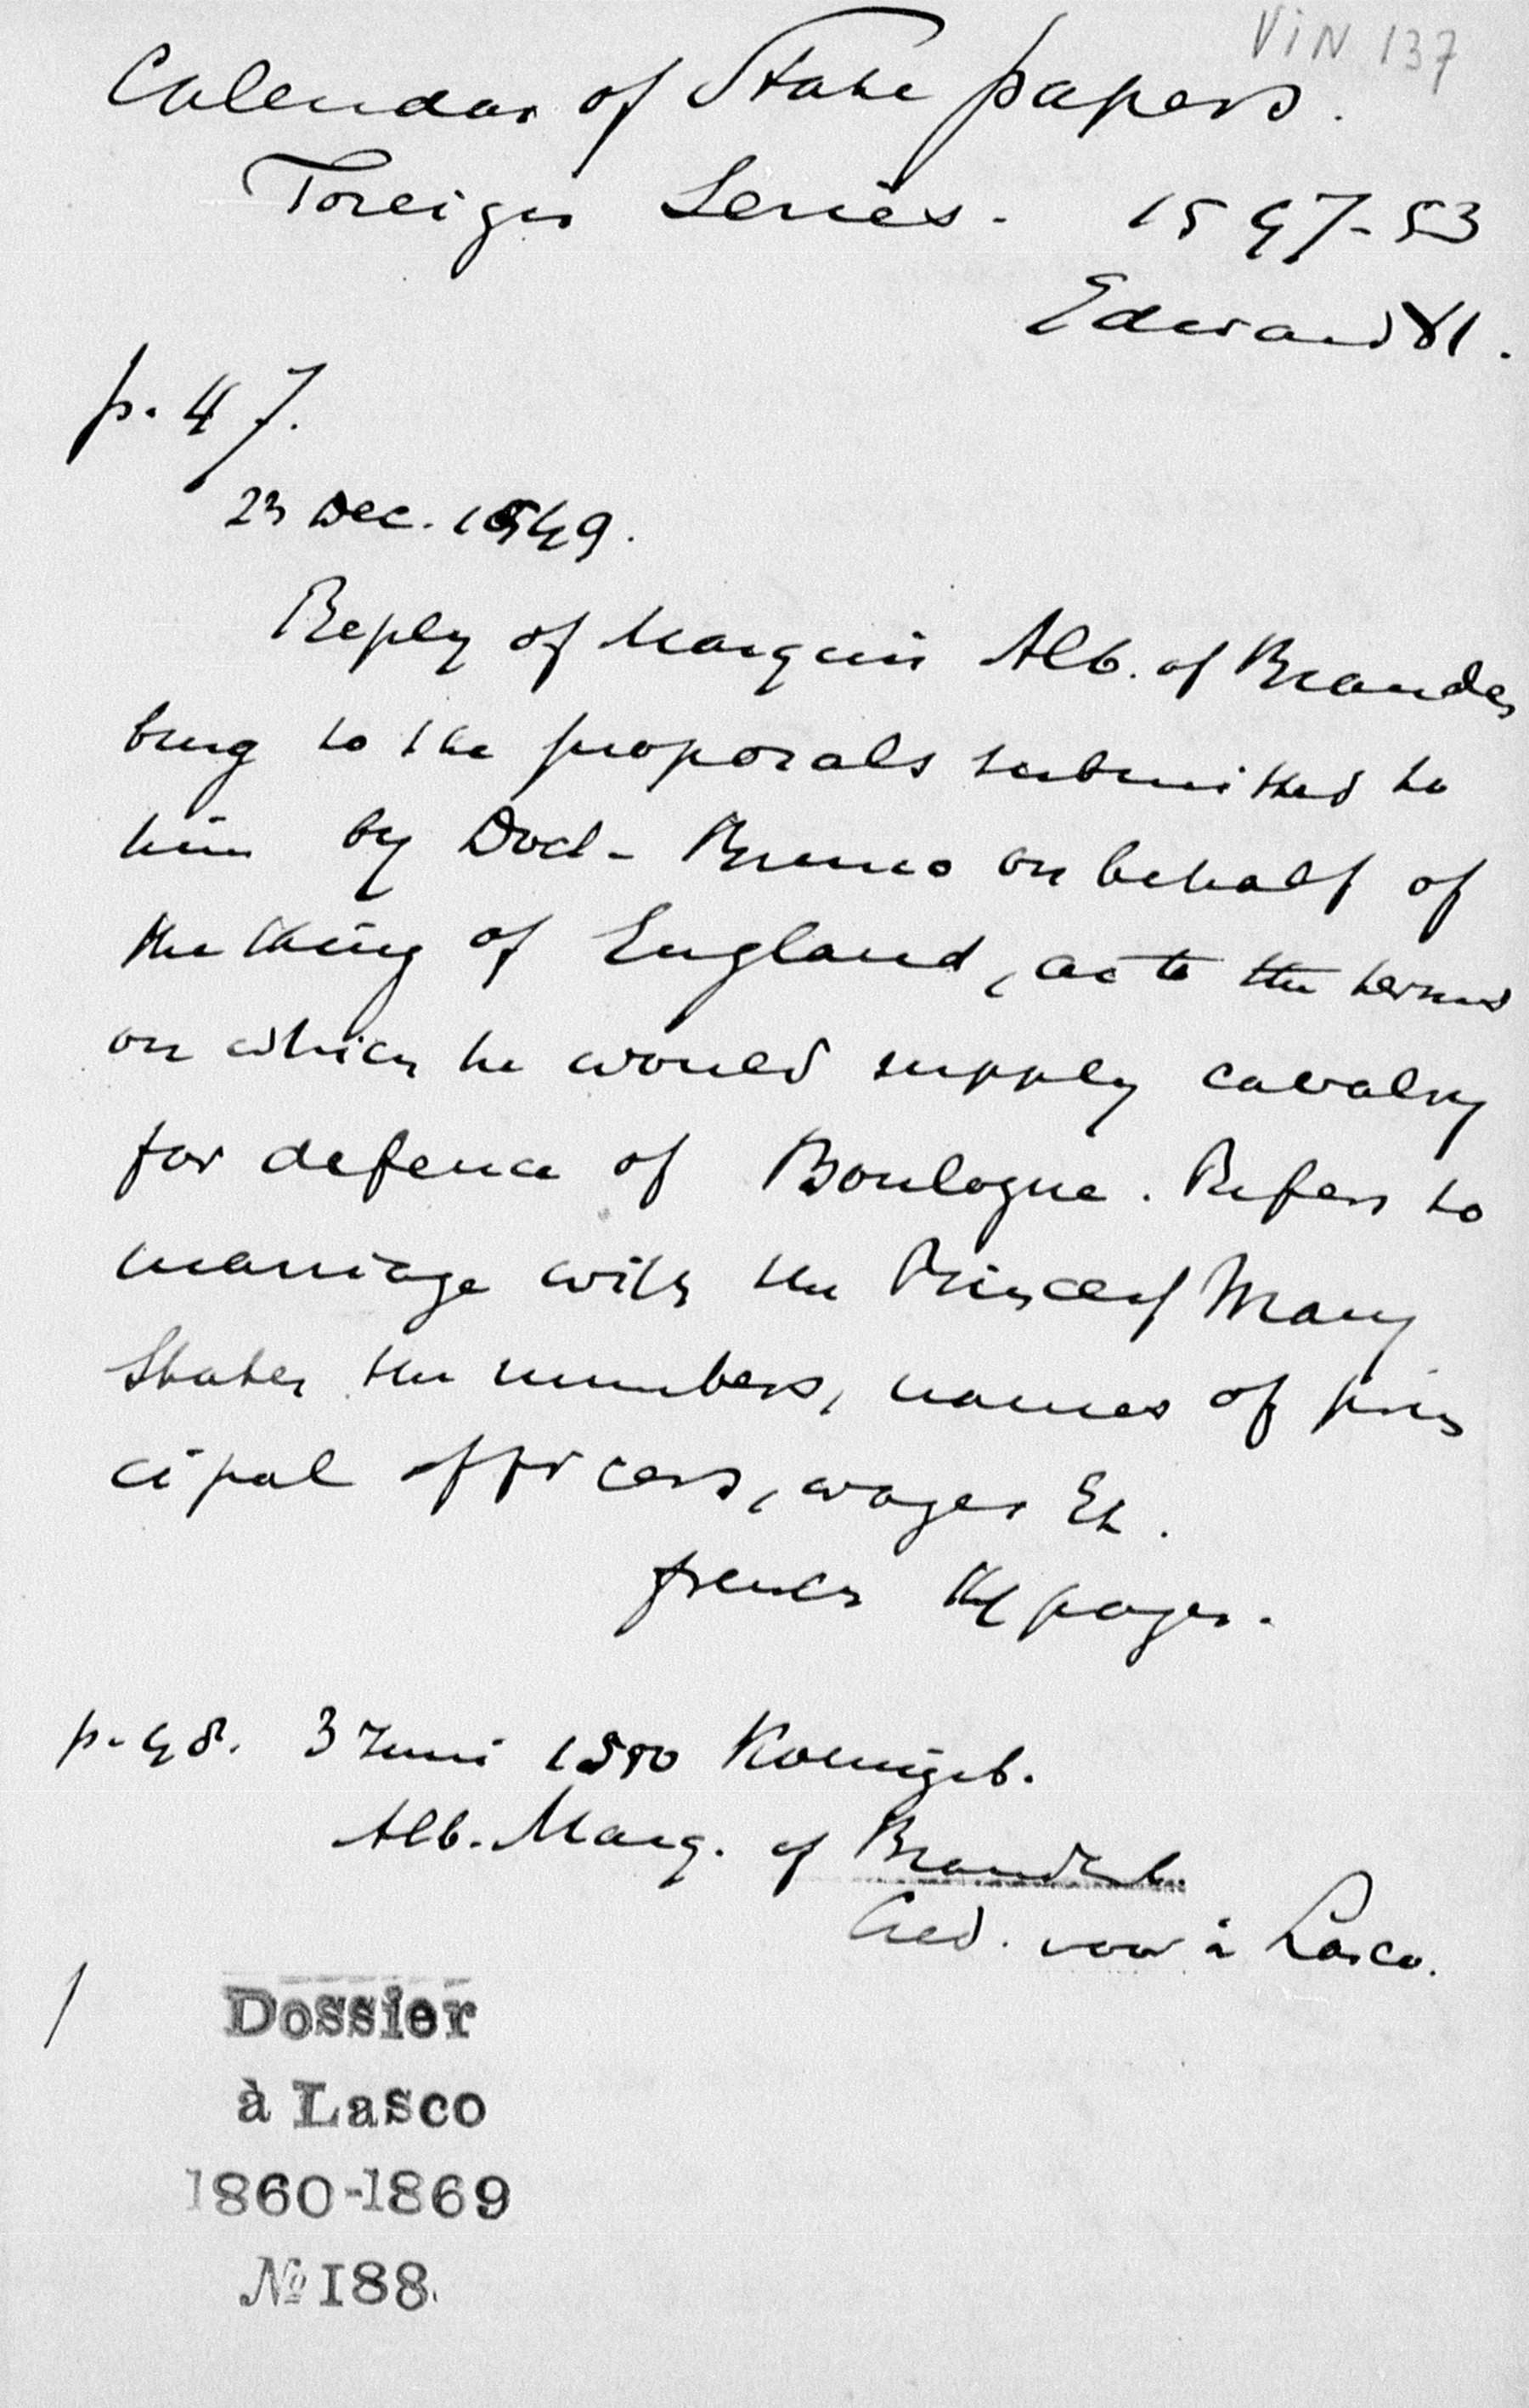 VIN 137
Calendar of State papers.
Foreign Series. 1547-53
Edward VI.
p. 47.
23 Dec. 1549.
Reply of Marquis Alb. of Branden
burg to the proposals submitted to
him by Doct. Bruno on behalf of
the King of England, as to the terms
on which he would supply cavalry
for defence of Boulogne. Refers to
marriage with the Princess Mary
States the numbers, names of prin
cipal officers, wages Etc.
french pages.
p. 48. 3 Juni 1550 Koenigsb.
Alb. Marq. of Brandenb.
Cred. voor à Lasco.
Dossier
à Lasco
1860-1869
№ 188.